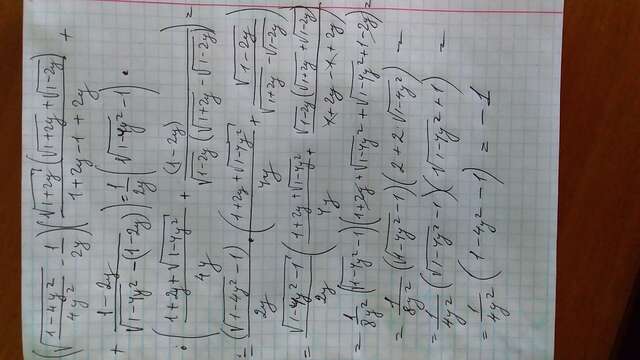 (√((1-4y²)/(4y²)) - 1/(2y)) (√(1+2y) (√(1+2y) + √(1-2y))/(1+2y-1+2y) +
+ (1-2y)/(√(1-4y²) - (1-2y))) = 1/(2y) (√(1-4y²) - 1) ·
· ((1+2y+√(1-4y²))/(4y) + (1-2y)/(√(1-2y) (√(1+2y) - √(1-2y)))) =
= (√(1-4y²) - 1)/(2y) · ((1+2y+√(1-4y²))/(4y) + √(1-2y)/(√(1+2y) - √(1-2y)))
= (√(1-4y²) - 1)/(2y) ((1+2y+√(1-4y²))/(4y) + √(1-2y) (√(1+2y) + √(1-2y))/(1+2y-1+2y))
= 1/(8y²) (√(1-4y²) - 1) (1+2y+√(1-4y²) + √(1-4y²) + 1-2y) =
= 1/(8y²) (√(1-4y²) - 1) (2+2·√(1-4y²)) =
= 1/(4y²) (√(1-4y²) - 1) (√(1-4y²) + 1) =
= 1/(4y²) (1-4y²-1) = -1